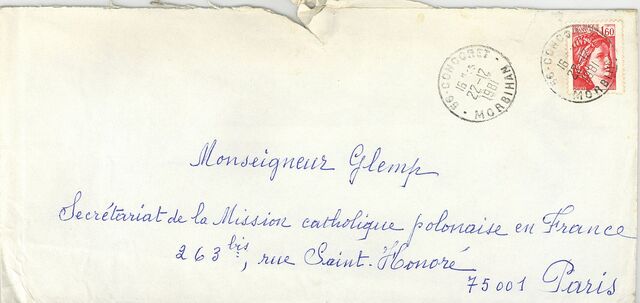 56-CONCORET
15 H
22-12
1981
MORBIHAN
1,60
56-CONCORET
15 H
22-12
1981
MORBIHAN
Monseigneur Glemp
Secrétariat de la Mission catholique polonaise en France
263 bis, rue Saint-Honoré
75001 Paris